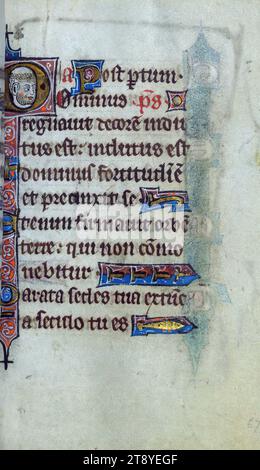 a Post partum.
Dominus ps
regnauit decorē indu
tus est: indutus est
dominus fortitudīē
et precinxit se
Etenim firmauit orbem
terre: qui non cōmo
uebitur
Parata sedes tua ex tūc
a seculo tu es
alamy
Image ID: 2T8YEGF
www.alamy.com